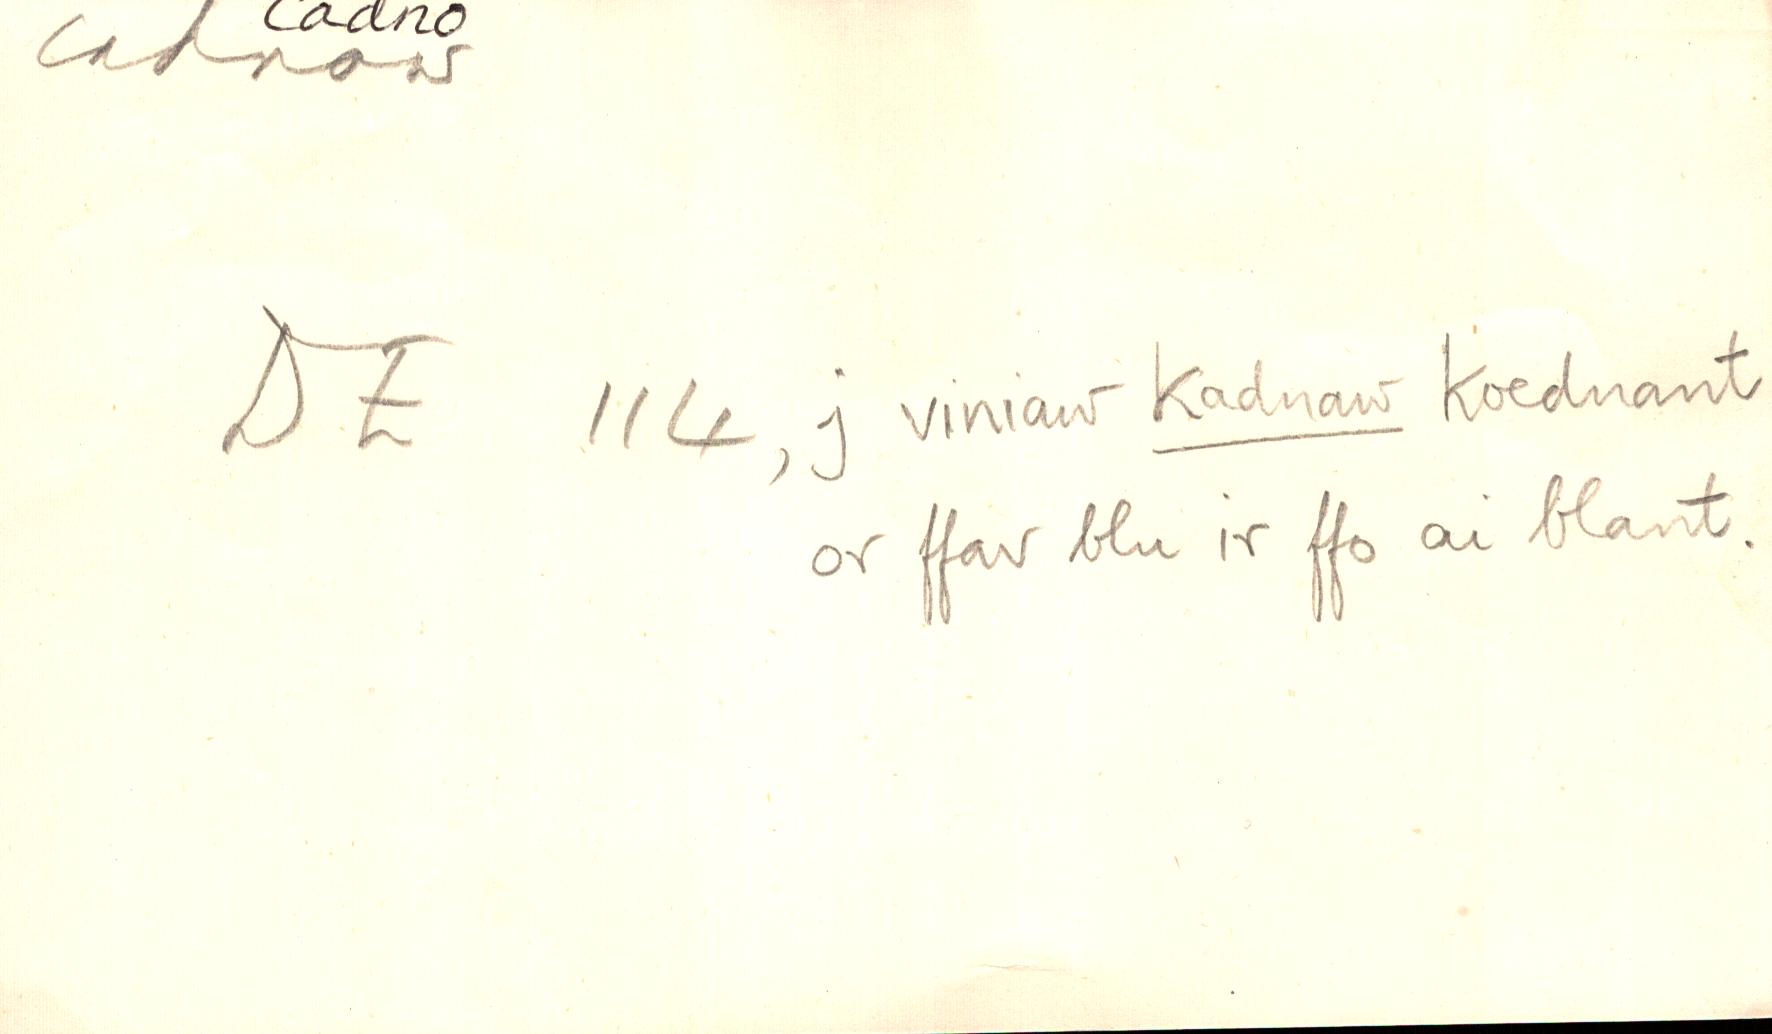 cadno
cadnaw
DE 114, j viniaw Kadnaw Koednant
or ffav blu ir ffo ai blant.